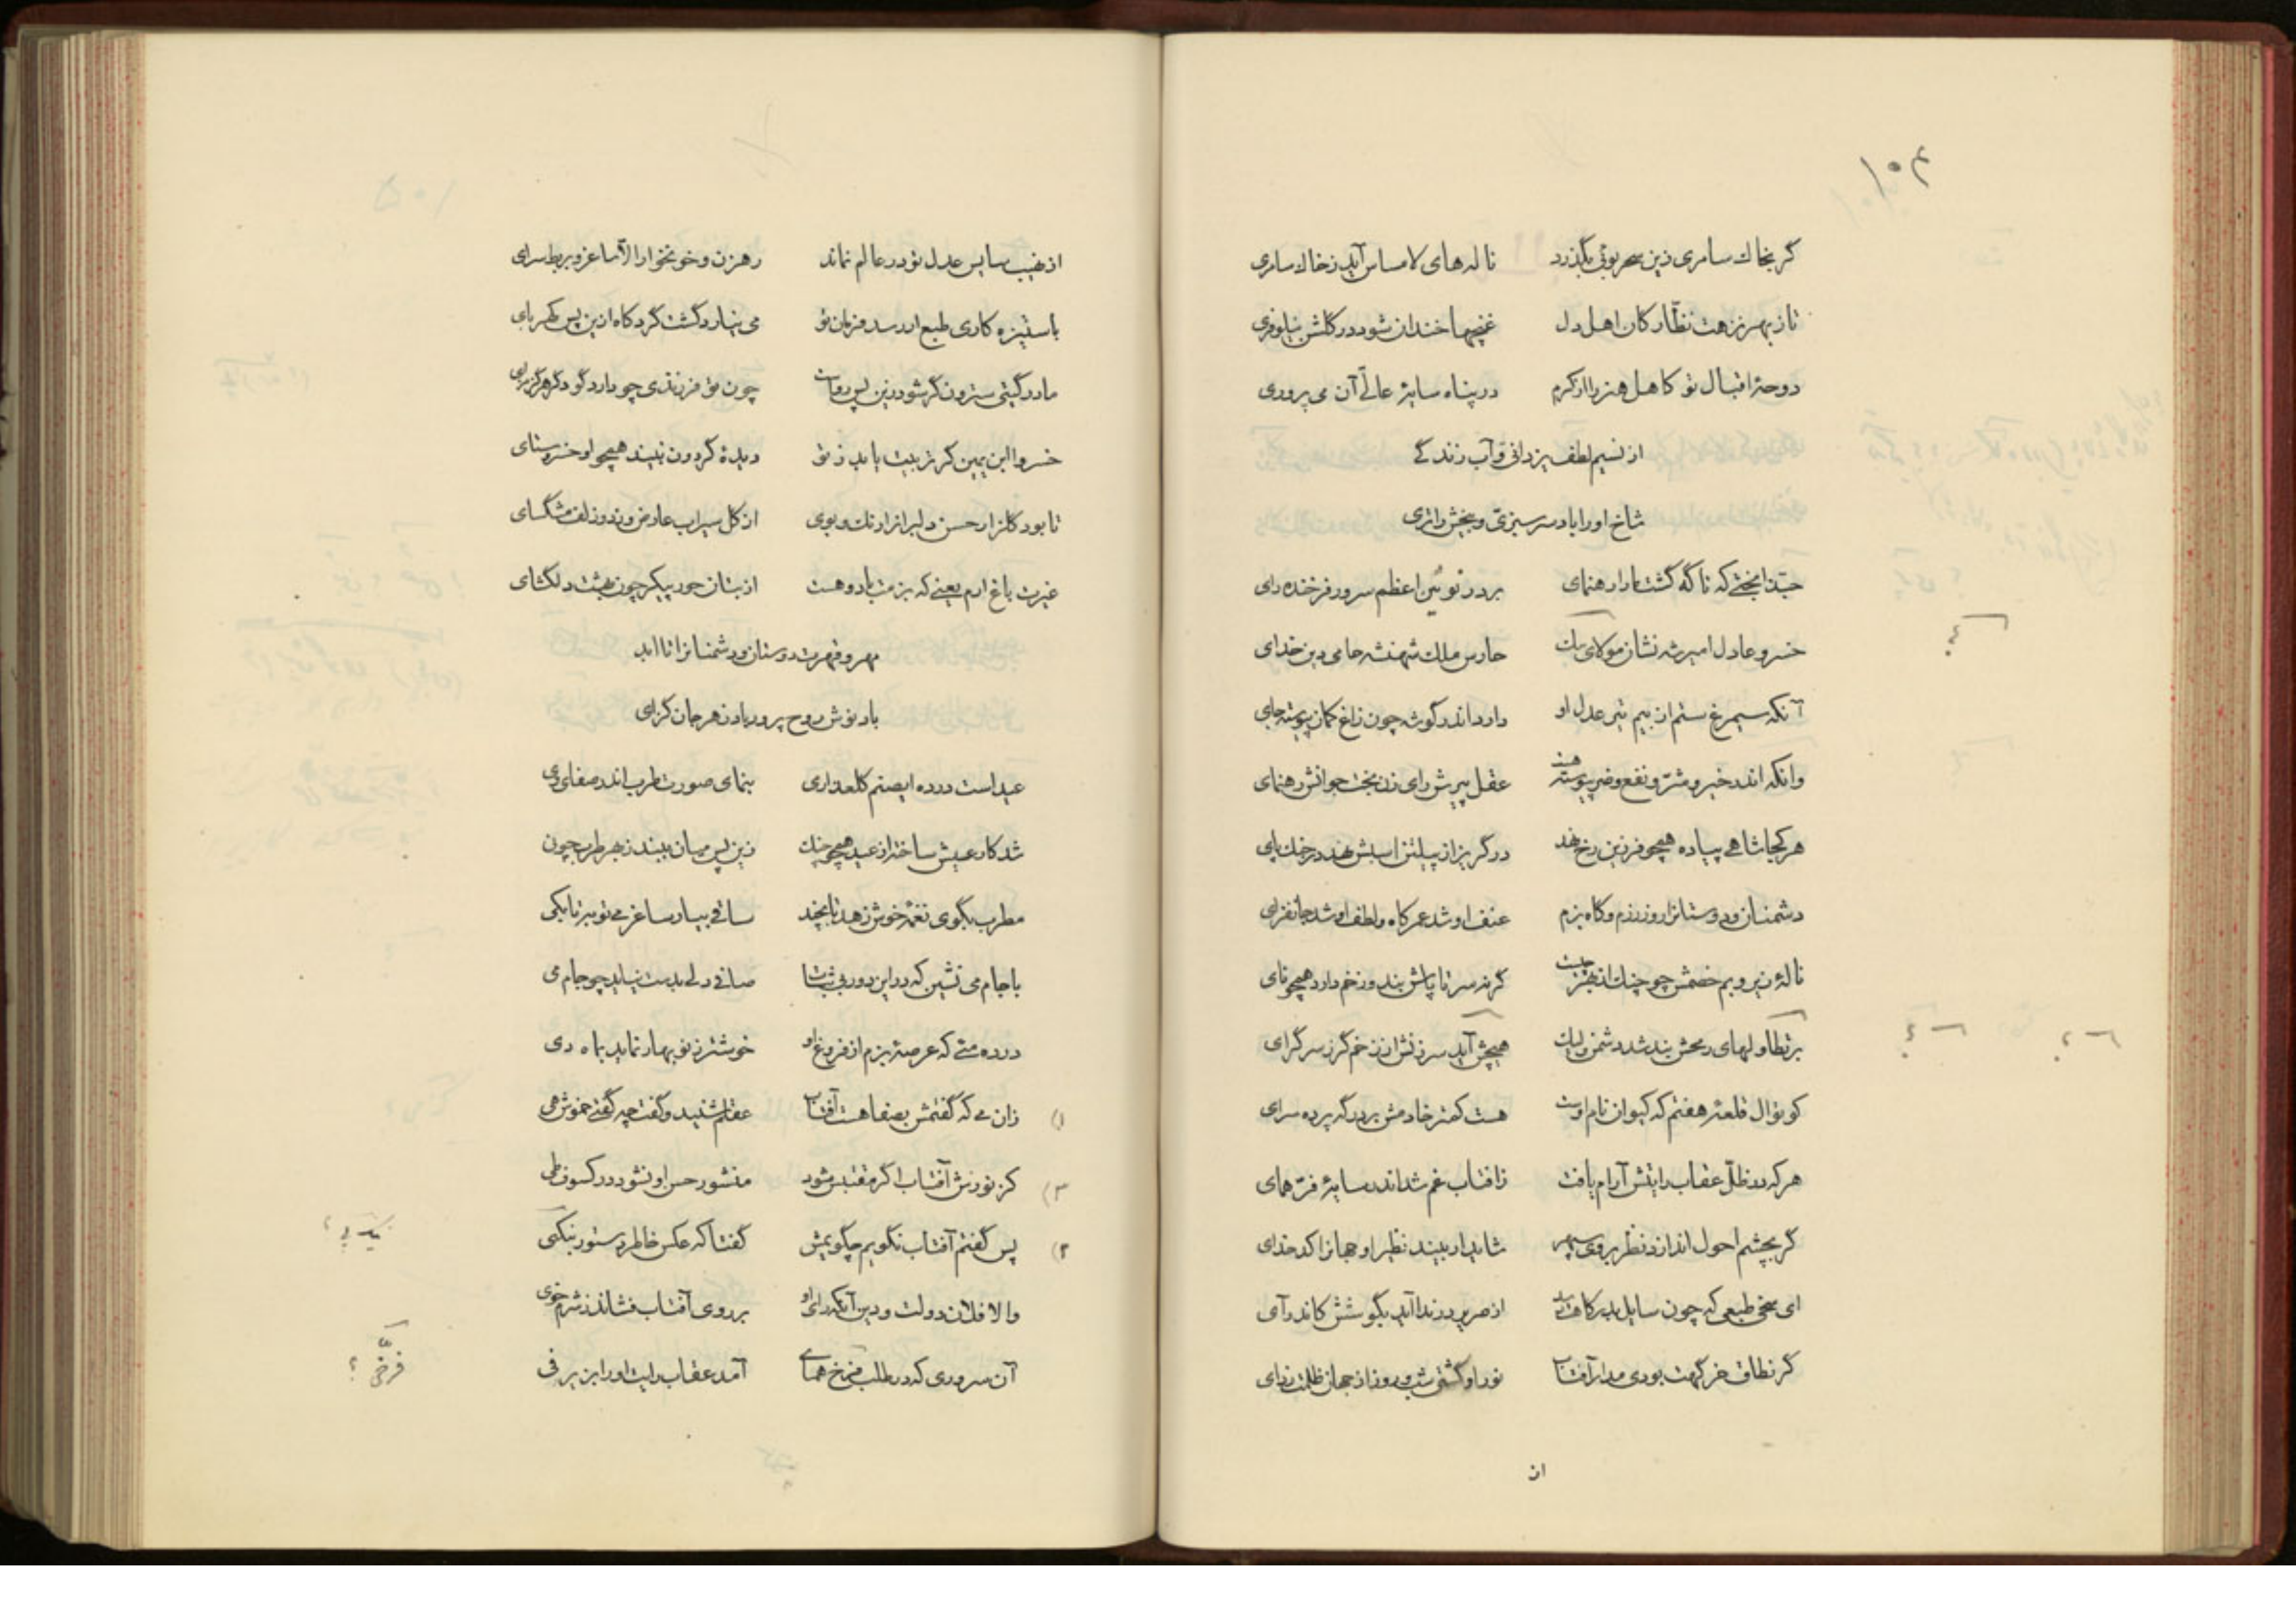 ۱۰۴
گر بخاك سامری زین سحر بوئی بگذرد نالههای لامساس آید ز خاك سامری
تا ز بهر نزهت نظّارکان اهل دل غنچها خندان شود در گلشن نیلوفری
دوحهٔ اقبال تو کاهل هنر را از کرم در پناه سایهٔ عالی آن می پروری
از نسیم لطف یزدانی و آب زندگی
شاخ او را باد سرسبزی و بیخش را تری
حبّذا بختی که ناگه گشت ما را رهنمای بر در نوئین اعظم سرور فرخنده رای
خسرو عادل امیر شه نشان مولای بیك حارس ملك شهنشه حامی دین خدای
آنکه سیمرغ ستم از بیم تیر عدل او دارد اندر گوشه چون زاغ کمان پیوسته جای
وانکه اندر خیر و شرّ و نفع و ضر پیوسته هست عقل پیرش رای زن بخت جوانش رهنمای
هر کجا شاهی پیاده همچو فرزین رخ نهد در گریز از پیلتن اسبش نهد در خاك پای
دشمنان و دوستانرا روز رزم و گاه بزم عنف او شد عمر کاه و لطف او شد جانفزای
نالهٔ زیر و بم خصمش چو چنك از بهر چیست گرنه سر تا پاش بند و زخم دارد همچو نای
بر تطاولهای رمحش بند شد دشمن ولیك هیچش آید سرزنش از زخم گرز سرگرای
کوتوال قلعهٔ هفتم که کیوان نام اوست هست کمتر خادمش بر درگه پرده سرای
هر که در ظلّ عقاب رایتش آرام یافت ز آفتاب غم شد اندر سایهٔ فرّ همای
گر بچشم احول اندازد نظر بر وی سپهر شاید ار بیند نظیر او جهانرا کدخدای
ای سخی طبعی که چون سایل بدرگاهت رسد از صریر در ندا آید بگوشش کاندر آی
گر نطاق خرگهت بودی مدار آفتاب نور او گشتی شب و روز از جهان ظلمت زدای
از
از نهیب سایس عدل تو در عالم نماند رهزن و خونخوار الاّ ساغر و بربط سرای
با ستیزه کاری طبع ار رسد فرمان تو می نیارد گشت گرد کاه ازین پس کهربای
مادر گیتی سترون گر شود زین پس رواست چون تو فرزندی چو دارد گو دگر هرگز مزای
خسروا ابن یمین کر تربیت یابد ز تو دیدهٔ گردون نبیند همچو او خسرو ستای
تا بود گلزار حسن دلبرانرا رنك و بوی از گل سیراب عارض وز دو زلف مشگسای
غیرت باغ ارم یعنی که بزمت باد و هست از بتان حور پیکر چون بهشت دلگشای
مهر و قهرت دوستان و دشمنانرا تا ابد
باد نوش روح پرور باد زهر جان گزای
عید است در ده ای صنم گلعذار می بنمای صورت طرب اندر صفای وی
شد کار عیش ساخته از عید همچو چنك زین پس میان ببند ز بهر طرب چون
مطرب بگوی نغمهٔ خوش زهد تا بچند ساقی بیار ساغر می توبه تا بکی
با جام می نشین که در این دور بی ثبات صافی دلی بدست نیاید چو جام می
در ده مئی که عرصهٔ بزم از فروغ او خوشتر ز نوبهار نماید بماه دی
۱) زان می که گفتمش بصفا هست آفتاب عقلم شنید و گفت چه گفتی خموش هی
۳) کز نورش آفتاب اگر مقتبس شود منشور حسن او نشود در کسوف طی
۲) پس گفتم آفتاب نگویم چگویمش گفتا که عکس خاطر دستور نیکپی
والا فلان دولت و دین آنکه رای او بر روی آفتاب فشاند ز شرم خوی
آن سروری که در طلب فرّخ همای آمد عقاب رایت او را بزیر فی
فرّخی ؟